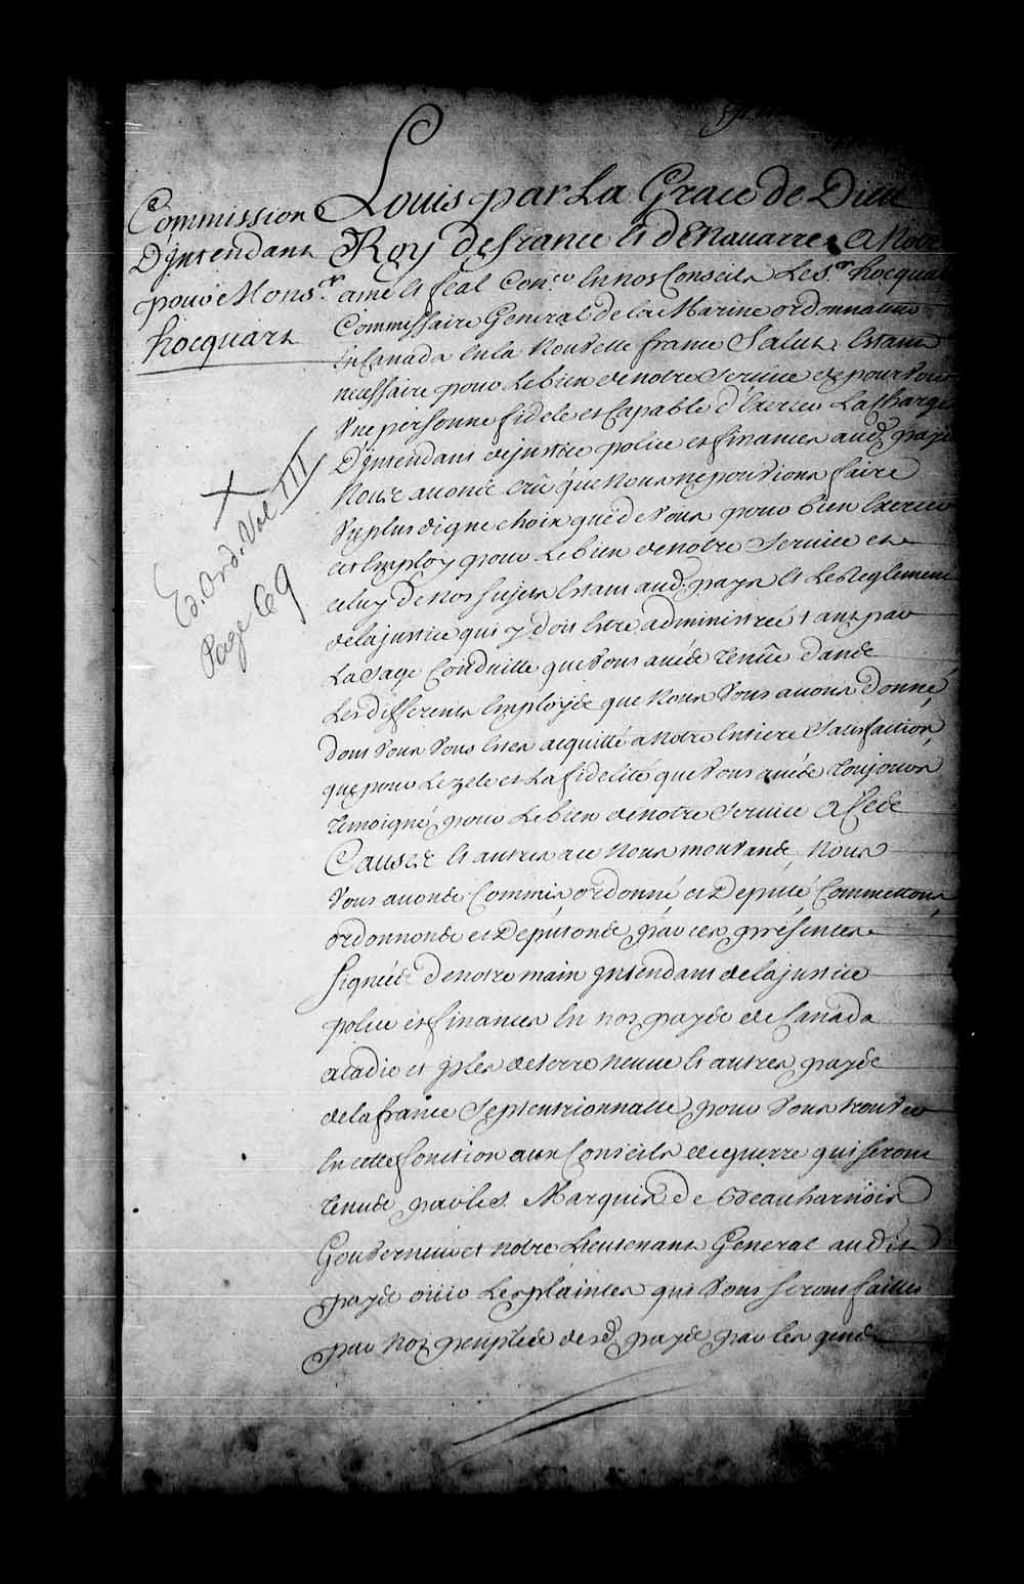 Commission
D'Intendant
pour Mons.r
hocquart
X
Ed. Ord. Vol III
Page 69
Louis par La Grace de Dieu
Roy de france et de Nauarre, A Notre
amé et feal Con.er en nos Conseils Le S.r hocquart
Commissaire General de la Marine ordonnateur
en Canada en la Nouvelle france Salut, Estant
necessaire pour Le bien de notre Seruice de pourvoir
Vne personne fidele et Capable d'Exercer La Charge
D'Intendant de justice police et finances aud. pays
Nous auons crû que Nous ne pouvions faire
Vn plus digne choix que de Vous pour bien Exercer
cet Employ pour Le bien de notre Seruice et
celuy de nos sujets Estant aud. pays et Le Reglement
de la justice qui y doit Estre administrée tant par
La sage Conduitte que Vous aués tenüe dans
Les differents Employs que Nous Vous auons donné,
dont Vous Vous Estes acquitté a Notre Entiere Satisfaction,
que pour Le zele et La fidelité que Vous aués toujours
temoigné, pour Le bien de notre Seruice A Ces
Causes et autres a ce Nous mouvans, Nous
Vous auons Commis ordonné et Deputé, Commettons,
ordonnons et Deputons, par ces présentes
signées de notre main Intendant de la justice
police et finances en nos pays de Canada
acadie et Isles de terre neuue et autres pays
de la france Septentrionnalle, pour Vous trouver
en cette fonction aux Conseils de guerre qui seront
tenus par le S. Marquis de Beauharnois
Gouverneur et notre Lieutenant General audit
pays ouir Les plaintes qui Vous seront faittes
par nos peuples desd. pays par les gens